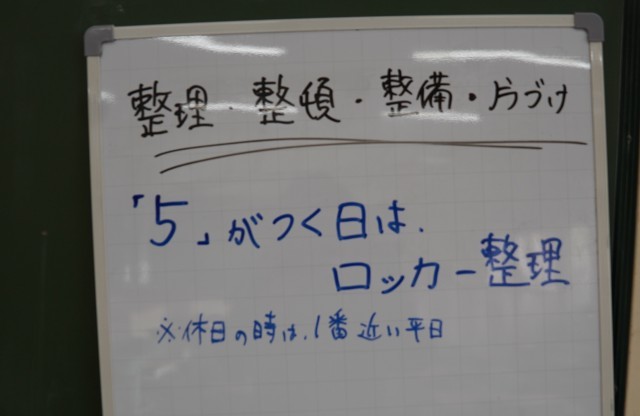 整理・整頓・整備・片づけ
「5」がつく日は、
ロッカー整理
※休日の時は、1番近い平日